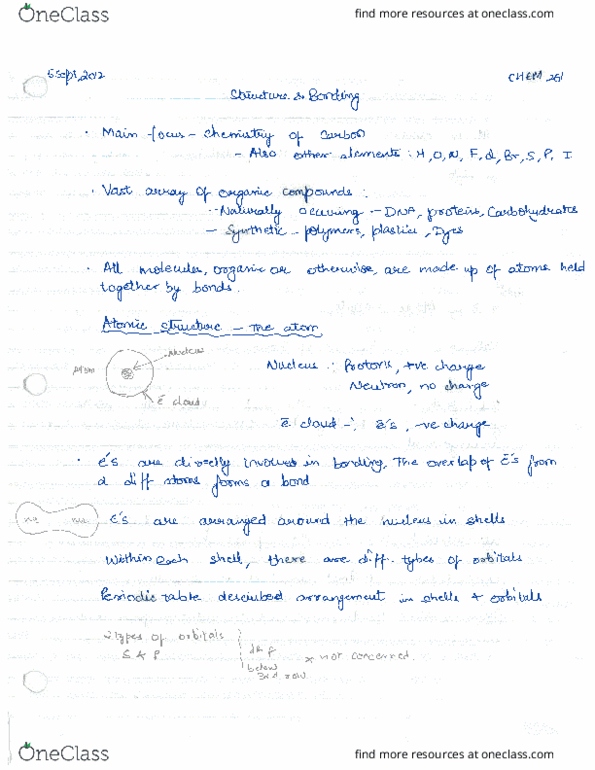 OneClass
find more resources at oneclass.com
5 Sept, 2012
CHEM 261
Structure & Bonding
· Main focus - chemistry of carbon
- Also other elements: H, O, N, F, Cl, Br, S, P, I
· Vast array of organic compounds:
- Naturally occuring - DNA, proteins, Carbohydrates
- Synthetic - polymers, plastics, Dyes
· All molecules, organic or otherwise, are made up of atoms held
together by bonds.
Atomic structure - The atom
Nucleus
Atom
ē cloud
Nucleus: Protons, +ve charge
Neutron, no charge
ē cloud -: ē's, -ve charge
· ē's are directly involved in bonding, The overlap of ē's from
2 diff atoms forms a bond
ē's are arranged around the nucleus in shells
Within each shell, there are diff. types of orbitals
Periodic table described arrangement in shells + orbitals
2 types of orbitals
S & P
d & f
below
3rd row
x not concerned
OneClass
find more resources at oneclass.com